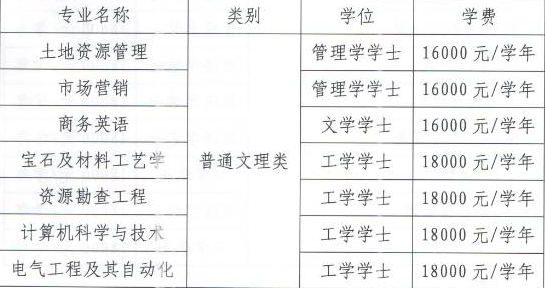 专业名称 类别 学位 学费
土地资源管理 管理学学士 16000 元/学年
市场营销 管理学学士 16000 元/学年
商务英语 文学学士 16000 元/学年
宝石及材料工艺学 普通文理类 工学学士 18000 元/学年
资源勘查工程 工学学士 18000 元/学年
计算机科学与技术 工学学士 18000 元/学年
电气工程及其自动化 工学学士 18000 元/学年